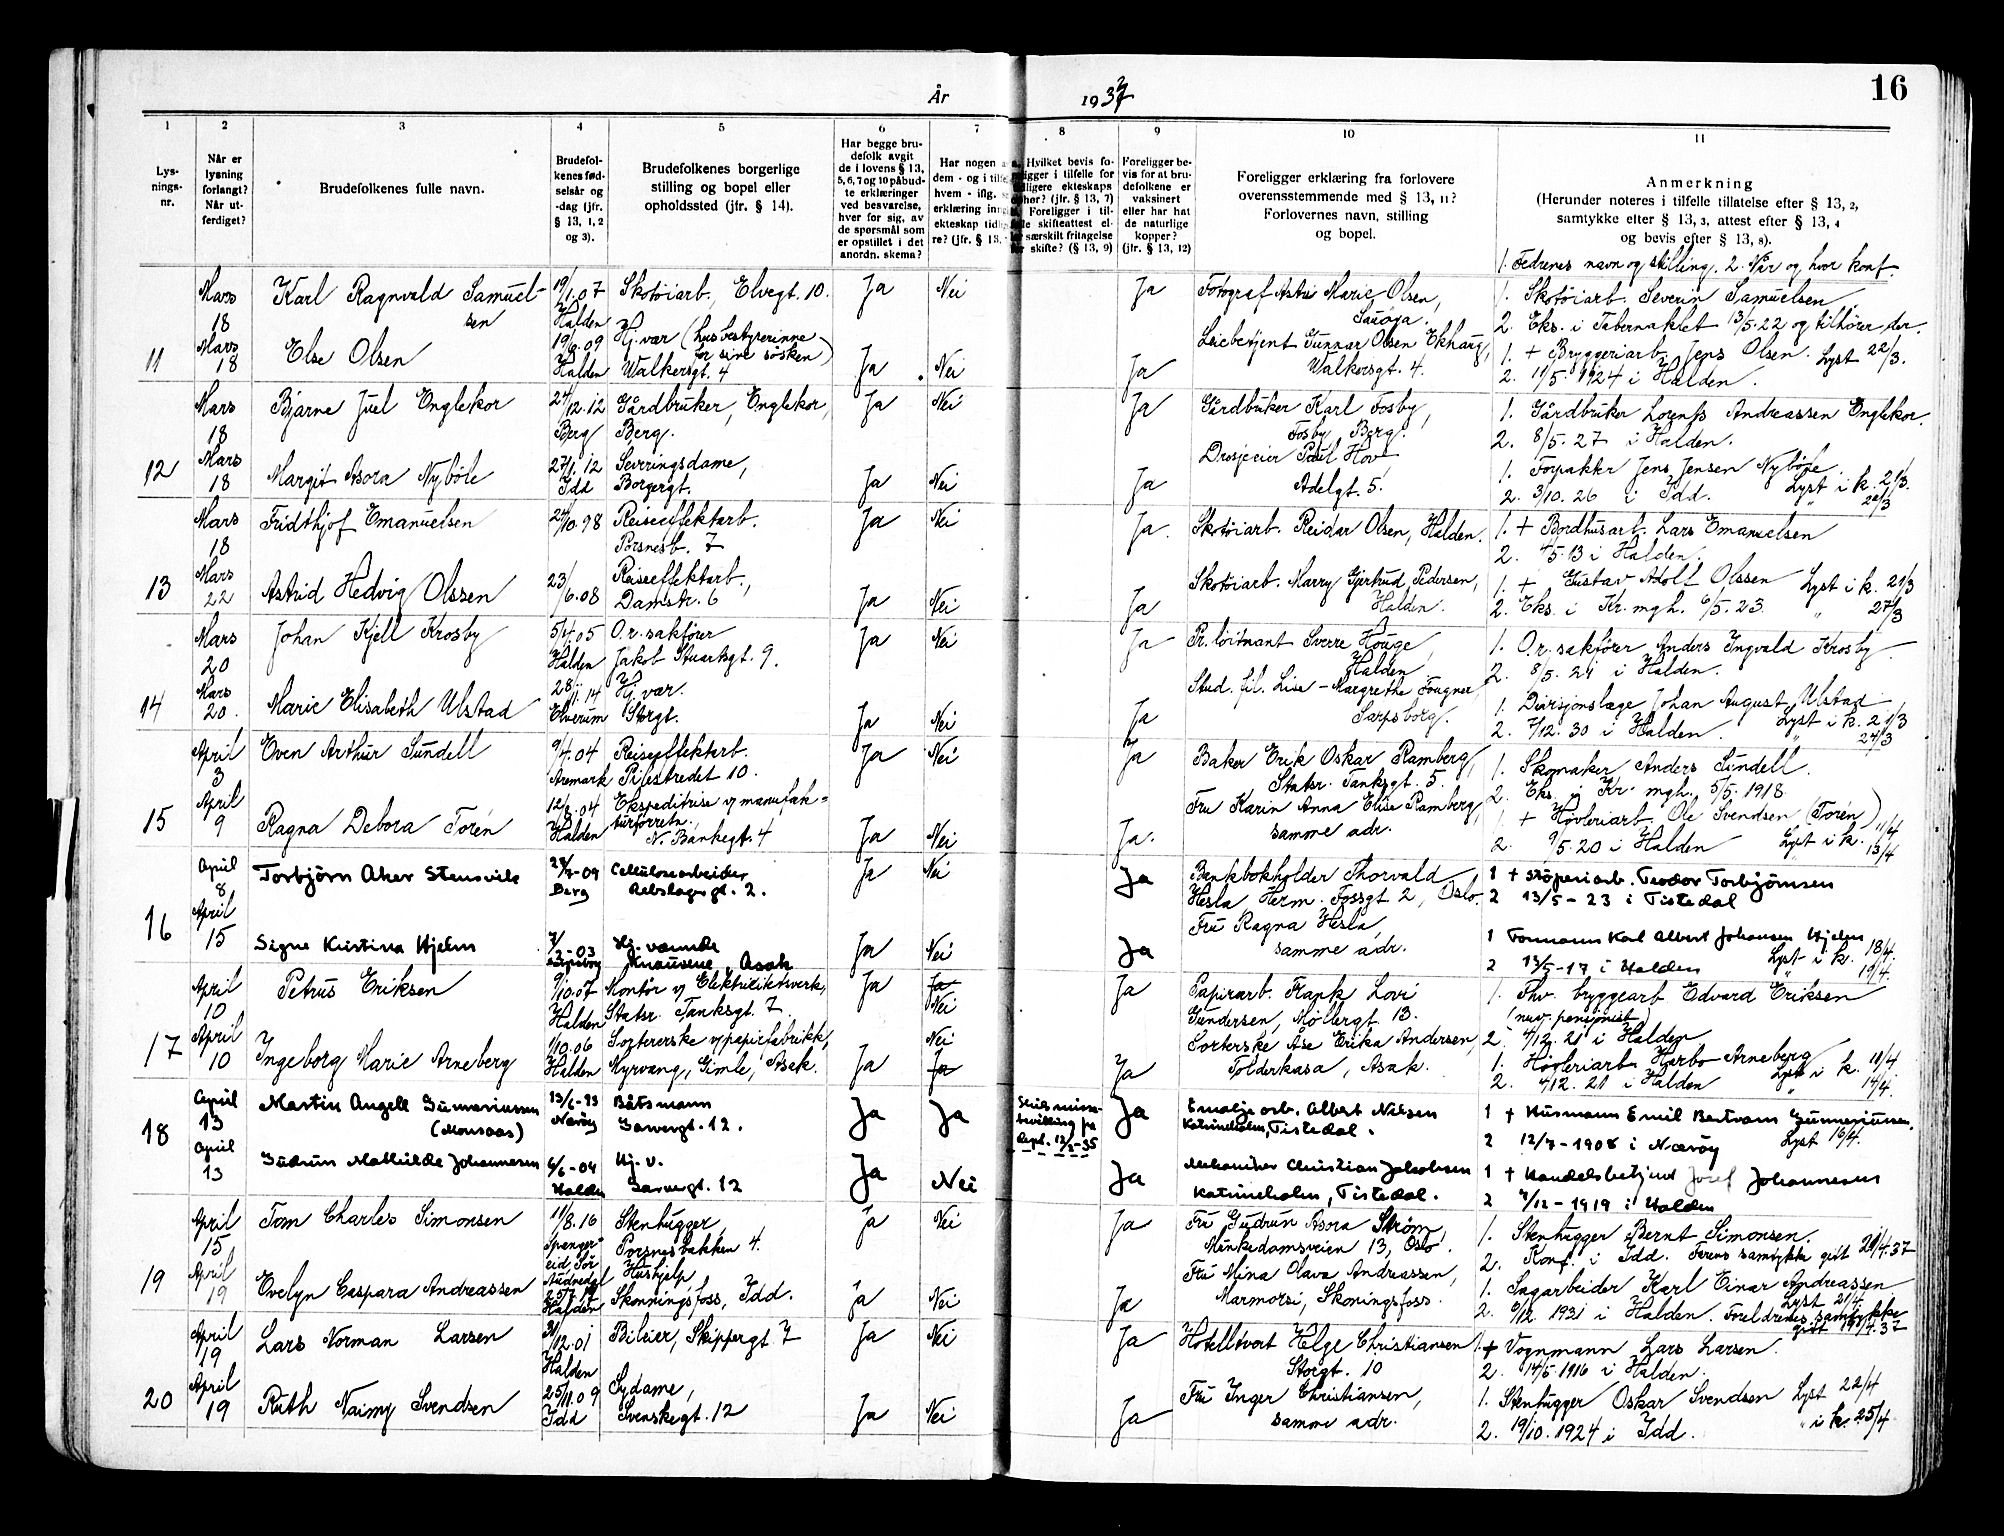 16
År 1937
1 2 3 4 5 6 7 8 9 10 11
Lysningsnr.
Når er lysning forlangt? Når utferdiget?
Brudefolkenes fulle navn.
Brudefolkenes fødselsår og -dag (jfr. § 13, 1, 2 og 3).
Brudefolkenes borgerlige stilling og bopel eller opholdssted (jfr. § 14).
Har begge brudefolk avgit de i lovens § 13, 5, 6, 7 og 10 påbudte erklæringer ved besvarelse, hver for sig, av de spørsmål som er opstillet i det anordn. skema?
Har nogen a
dem - og i tilfe
hvem - iflg.
erklæring inng
ekteskap tidlig
re? (jfr. § 13,
Hvilket bevis foreligger i tilfelle for tidligere ekteskaps ophør? (jfr. § 13, 7) Foreligger i tilfelle skifteattest eller særskilt fritagelse for skifte? (§ 13, 9)
Foreligger bevis for at brudefolkene er vaksinert eller har hat de naturlige kopper? (jfr. § 13, 12)
Foreligger erklæring fra forlovere overensstemmende med § 13, 11? Forlovernes navn, stilling og bopel.
Anmerkning
(Herunder noteres i tilfelle tillatelse efter § 13, 2,
samtykke efter § 13, 3, attest efter § 13, 4
og bevis efter § 13, 8).
1. Fedrenes navn og stilling. 2. Når og hvor konf.
11
Mars 18 Karl Ragnvald Samuelsen 19/1.07 Halden Skotøiarb., Elvegt. 10. Ja Nei Ja Fotograf Marie Olsen, 1. Skotøiarb. Severin Samuelsen
2. Eks. i Tabernaklet 13/5.22 og tilhører der.
Mars 18 Else Olsen 19/6.09 Halden Hj.vær (husbestyrerinne for sine søsken) Walkersgt. 4 Ja Nei Ja Gunnar Olsen Ekhaug, Walkersgt. 4. 1. + Bryggeriarb. Jens Olsen. Lyst 22/3.
2. 11/5. 1924 i Halden.
12
Mars 18 Bjarne Juel Englekor 24/12.12 Berg Gårdbruker, Englekor, Berg. Ja Nei Ja Gårdbruker Karl Fosby, Fosby, Berg. 1. Gårdbruker Andreassen Englekor.
2. 8/5. 27 i Halden.
Mars 18 Margit Asora Nybøle 27/1.12 Idd Serveringsdame, Borgergt. Ja Nei Ja Drosjeeier Paul Hov Adelgt. 5. 1. Forpakter Jens Jensen Nybøle. Lyst i k. 21/3.
2. 3/10. 26 i Idd. " 22/3
13
Mars 18 Fridthjof Emanuelsen 24/10.98 Reiseeffektarb. Porsnesb. 7 Ja Nei Ja. Skotøiarb. Reidar Olsen, Halden. 1. + Bordhusarb. Lars Emanuelsen
2. 4/5.13 i Halden.
Mars 22 Astrid Hedvig Olssen 23/6.08 Reiseeffektarb., Damstr. 6 Ja Nei Ja Skotøiarb. Marry Gjertrud Pedersen, Halden. 1. + Gustav Adolf Olssen Lyst i k. 21/3
2. Eks. i Kr. mgh. 6/5. 23. " 27/3
14
Mars 20 Johan Kjell Krosby 5/4.05 Halden O.r. sakfører Jakob Stuartsgt. 9. Ja Nei Ja Pr. løitnant Sverre Houge, Halden 1. O.r. sakfører Anders Ingvald Krosby.
2. 8/5. 21 i Halden.
Mars 20. Marie Elisabeth Ulstad 28/ 14 Elverum Hj. vær. Storgt. Ja Nei Ja Stud. fil. Lise-Margrethe Fougner, Sarpsborg. 1. Divisjonslæge Johan August Ulstad
2. 7/12. 30 i Halden. Lyst i k. 21/3 " 24/3
15
April 3 Even Arthur Sundell 9/4.04 Aremark Reiseeffektarb. Pilestredet 10. Ja Nei Ja Baker Erik Oskar Ramberg, Statsr. Tanksgt. 5. 1. Skomaker Anders Sundell.
2. Eks. i Kr. mgh. 5/5 1918.
April 9 Ragna Debora Torén 12/8.04 Halden Ekspeditrise v/ manufakturforretn., N. Bankegt. 4 Ja Nei Ja. Fru Karin Anna Elise Ramberg, samme adr. 1. + Høvleriarb. Ole Svendsen (Torén) 11/4
2. 9/5. 20 i Halden Lyst i k. " 13/4
16
April 8 Torbjørn Aker Stensvik -09 Berg Cellulosearbeider Rebslagergt. 2. Ja Nei Ja Bankbokholder Thorvald Hesla, Herm. Fossgt 2, Oslo. 1 + støperiarb. Teodor Torbjørnsen
2 13/5 - 23 i Tistedal
April 15 Signe Kristina Hjelm 7/2-03 Hj. værende Knausene, Asak Ja Nei Ja Fru Ragna Hesla, samme adr. 1 Formann Karl Albert Johansen Hjelm
2 13/5 - 17 i Halden Lyst i k. 18/4. " 19/4.
17
April 10 Petrus Eriksen 9/10.07 Halden Montør v/ Elektrisitetsverk, Statsr. Tanksgt. 7 Ja Ja Nei Ja Papirarb. Frank Lovi Gundersen, Møllergt 13. 1. Fhv. bryggearb Edvard Eriksen
(nuv. pensjonist)
2. 4/12. 21 i Halden
April 10 Ingeborg Marie Arneberg /10.06 Halden Sortererske v/papirfabrikk, Myrvang, Gimle, Asak. Ja Nei Ja Ja Sorterske Åse Erika Andersen, Folderkasa, Asak. 1. Høvleriarb. Herbo Arneberg Lyst i k. 11/4
2. 4/12. 21 i Halden " 14/4.
18
April 13 Martin Angell Gunnariussen (Monsaas) 13/6-93 Nærøy Båtsmann Garvergt. 12. Ja Ja Skilsmissebevilling fra 12/2-35 Ja Emaljearb. Albert Nilsen Katrineholm, Tistedal. 1 + Husmann Emil Bertram Gunnariussen.
2 12/7-1908 i Nærøy Lyst 16/4.
April 13 Gudrun Mathilde Johannesen 6/6-04 Halden Hj. v. Garvergt. 12 Ja Nei Ja Mekaniker Christian Jakobsen Katrineholm, Tistedal. 1 + Handelsbetjent Josef Johannesen
2 7/12 - 1919 i Halden
19
April 15 Tom Charles Simonsen 11/8.16 Spangereid, Sør Audnedal Stenhugger, Porsnesbakken 4. Ja Nei Ja Fru Gudrun Asora Strøm, Munkedamsveien 13, Oslo. 1. Stenhugger Bernt Simonsen.
2. Konf. i Idd. Farens samtykke gitt 20/4.37
April 19 Evelyn Caspara Andreassen 25/7.17 Halden Hushjelp Skonningsfoss, Idd. Ja Nei Ja Fru Mina Olava Andreassen, Marmorsi, Skoningsfoss. 1. Sagarbeider Karl Einar Andreassen Lyst 21/4.
2. 6/12 1931 i Halden. Foreldrenes samtykke gitt 19/4.37
20
April 19 Lars Norman Larsen 31/12.01 Halden Bileier, Skippergt. 7 Ja Nei Ja Hotellvert Helge Christiansen Storgt. 10 1. + Vognmann Lars Larsen.
2. 14/5.1916 i Halden.
April 19 Ruth Naimy Svendsen 25/11.09 Idd Sydame, Svenskegt. 12 Ja Nei Ja Fru Inger Christiansen, samme adr. 1. Stenhugger Oskar Svendsen Lyst 22/4
2. 19/10. 1924 i Idd. " i k. 25/4